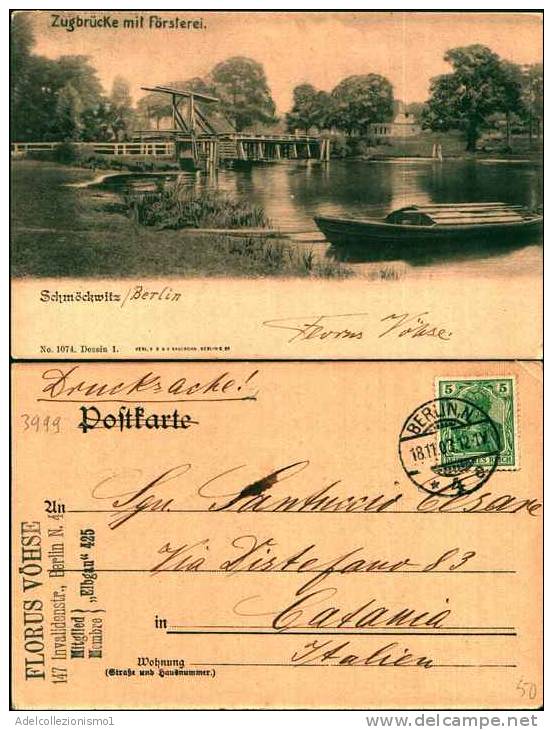 Zugbrücke mit Försterei.
Schmöckwitz/Berlin
Florus Vöhse.
No. 1074. Dessin 1.
Drucksache!
3999
Postkarte
5 5
DEUTSCHES REICH
BERLIN, N.
4
An Sgn. Santuccio Cesare
Via Distefano 83
in Catania
Italien
Wohnung
(Straße und Hausnummer.)
FLORUS VÖHSE
147 Invalidenstr., Berlin N. 4
Mitglied } „Elbgau“ 425
Membre
50
Adelcollezionismo1
delcampe.net